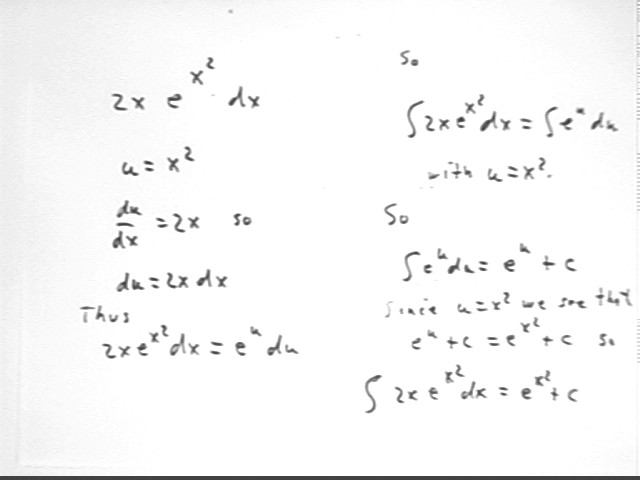 2x e^{x^2} dx
u = x^2
du/dx = 2x so
du = 2x dx
Thus
2x e^{x^2} dx = e^u du
So
∫ 2x e^{x^2} dx = ∫ e^u du
with u = x^2.
So
∫ e^u du = e^u + c
since u = x^2 we see that
e^u + c = e^{x^2} + c so
∫ 2x e^{x^2} dx = e^{x^2} + c